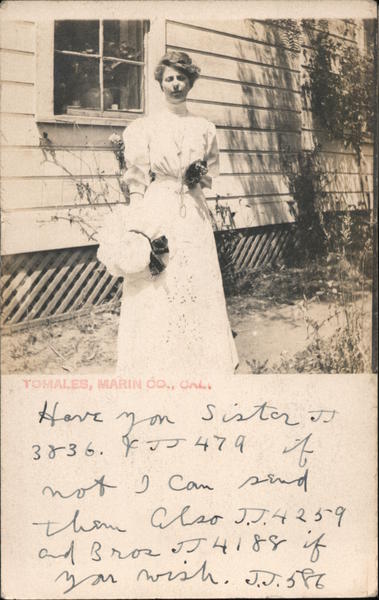 TOMALES, MARIN CO., CAL.
Have you Sister JJ
3836. & JJ 479 if
not I can send
them Also J.J. 4259
and Bros JJ 4188 if
you wish. J.J. 586